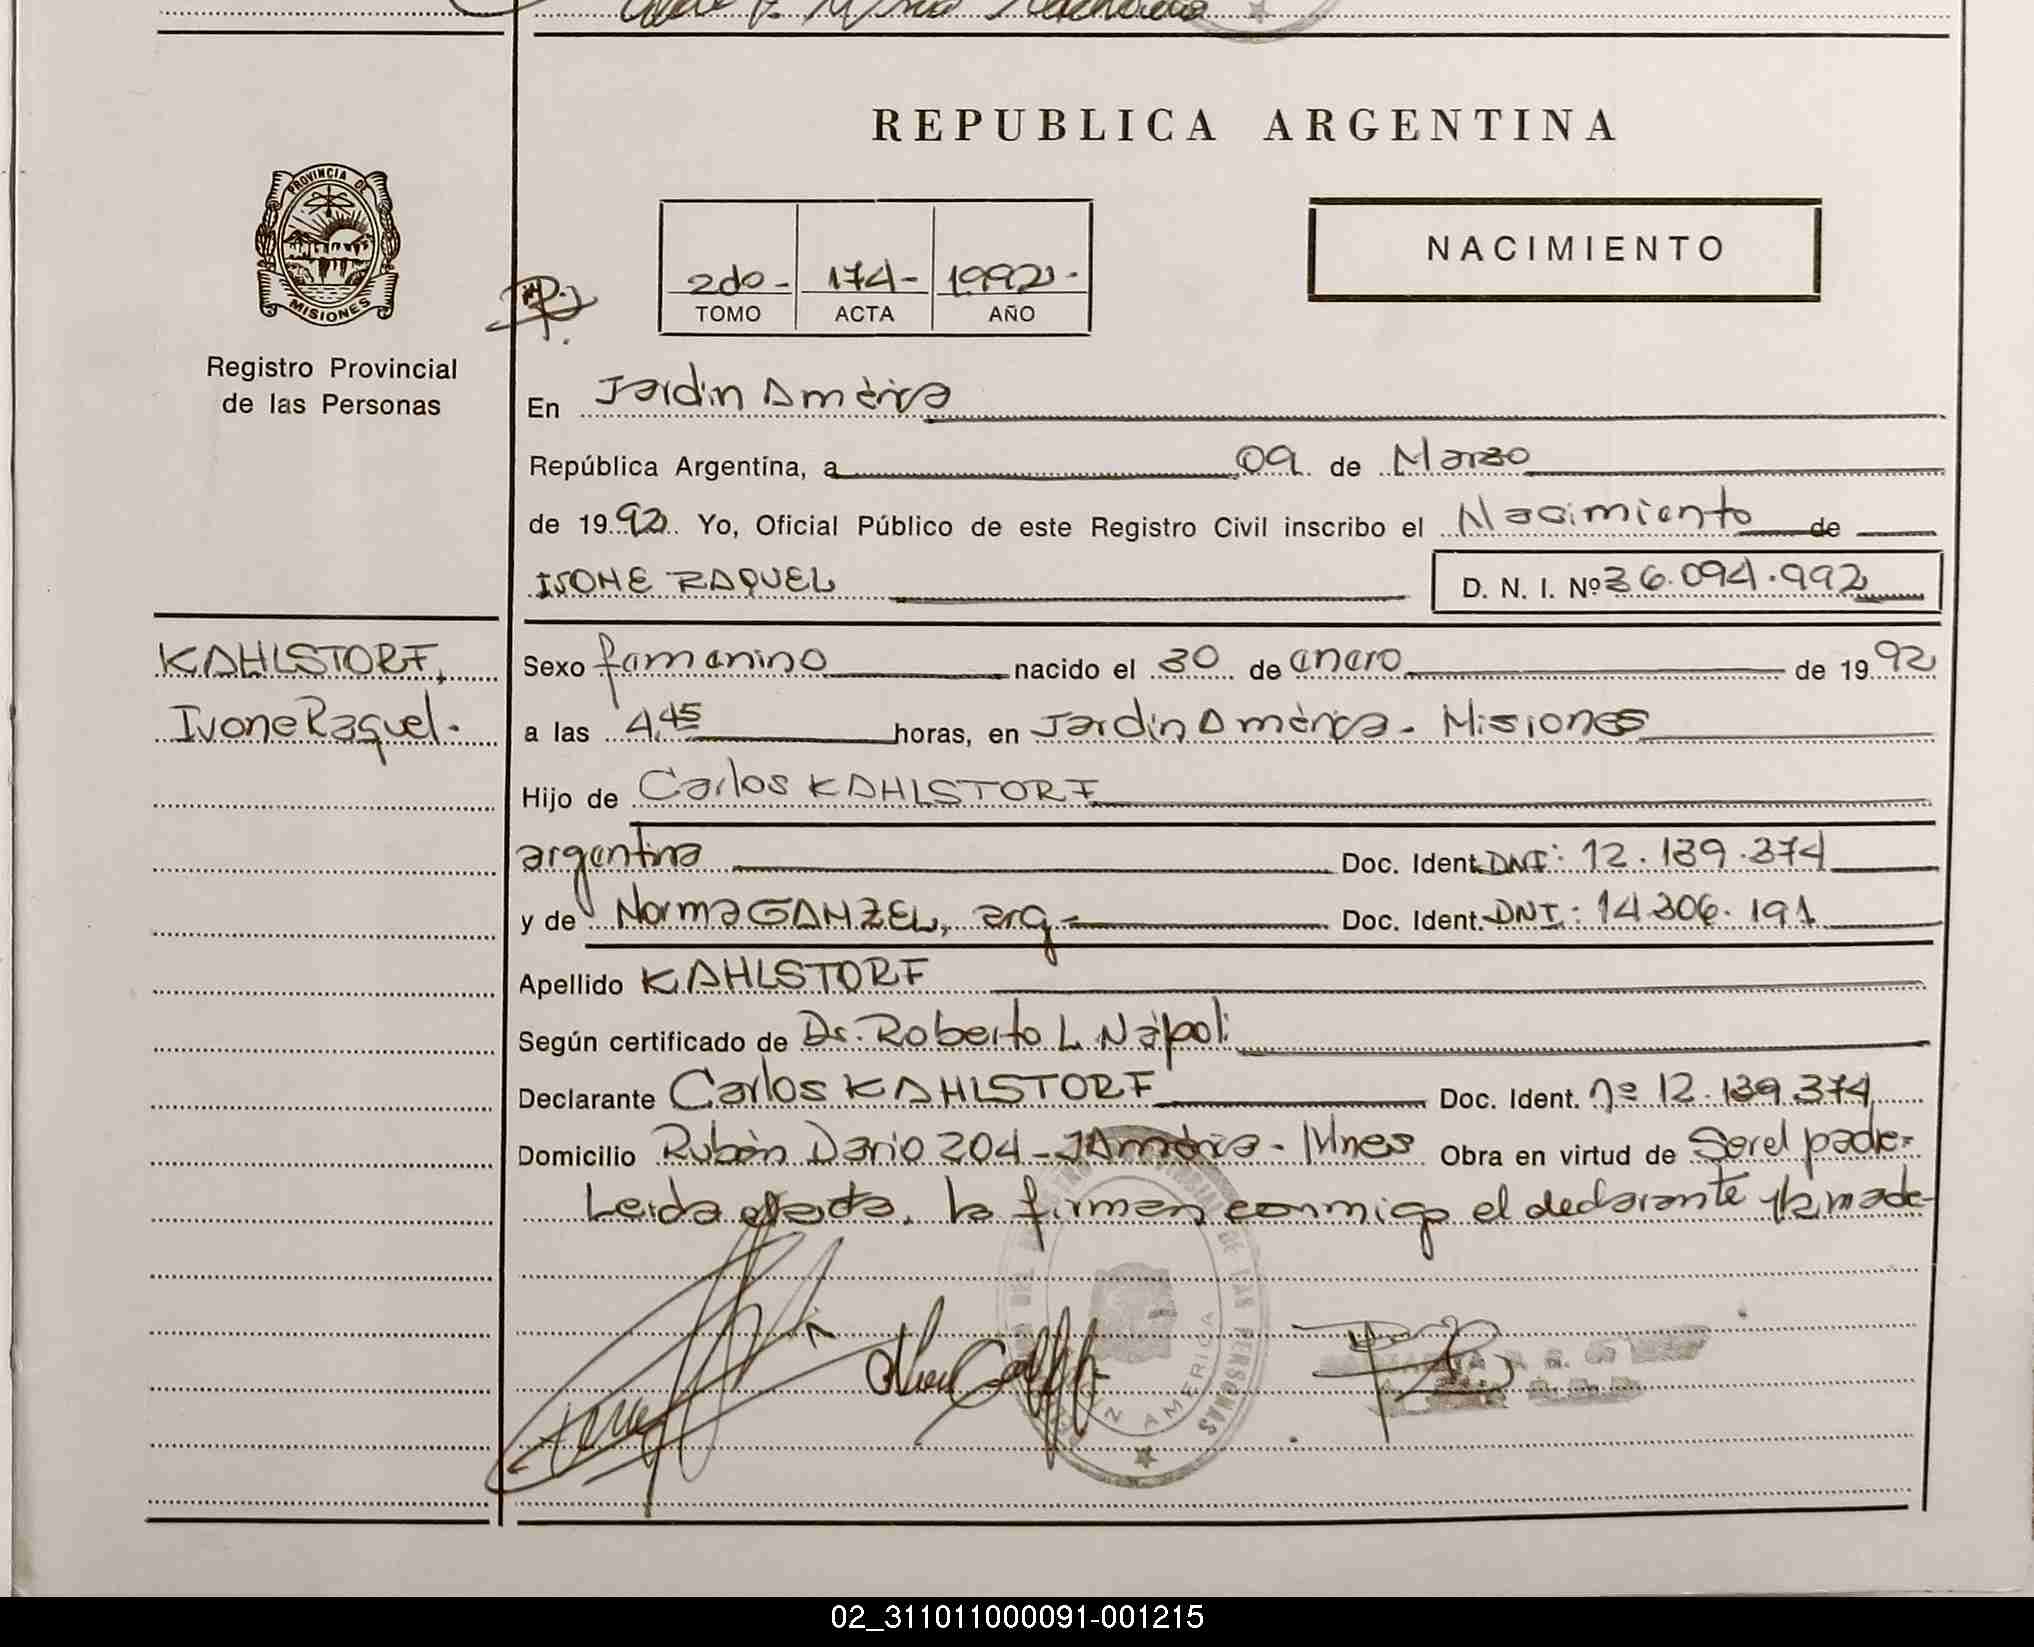 REPUBLICA ARGENTINA
PROVINCIA DE
MISIONES
Registro Provincial
de las Personas
NACIMIENTO
2do - 174- 1992 -
TOMO ACTA AÑO
En Jardín América
República Argentina, a 09 de Marzo
de 1992 Yo, Oficial Público de este Registro Civil inscribo el Nacimiento de
IVONE RAQUEL D. N. I. Nº 36.094.992
KAHLSTORF,
Ivone Raquel.
Sexo femenino nacido el 30 de enero de 1992
a las 4,45 horas, en Jardín América - Misiones
Hijo de Carlos KAHLSTORF
argentina Doc. Ident. DNI: 12.139.374
y de Norma GANZEL, arg - Doc. Ident. DNI: 14.306.191
Apellido KAHLSTORF
Según certificado de Dr. Roberto L. Nápoli
Declarante Carlos KAHLSTORF Doc. Ident. nº 12.139.374
Domicilio Rubén Darío 204 - J América - Mnes Obra en virtud de Ser el padre-
Leída el acta, la firman conmigo el declarante y la madre-
DE LAS PERSONAS
IN AMERICA
02_311011000091-001215